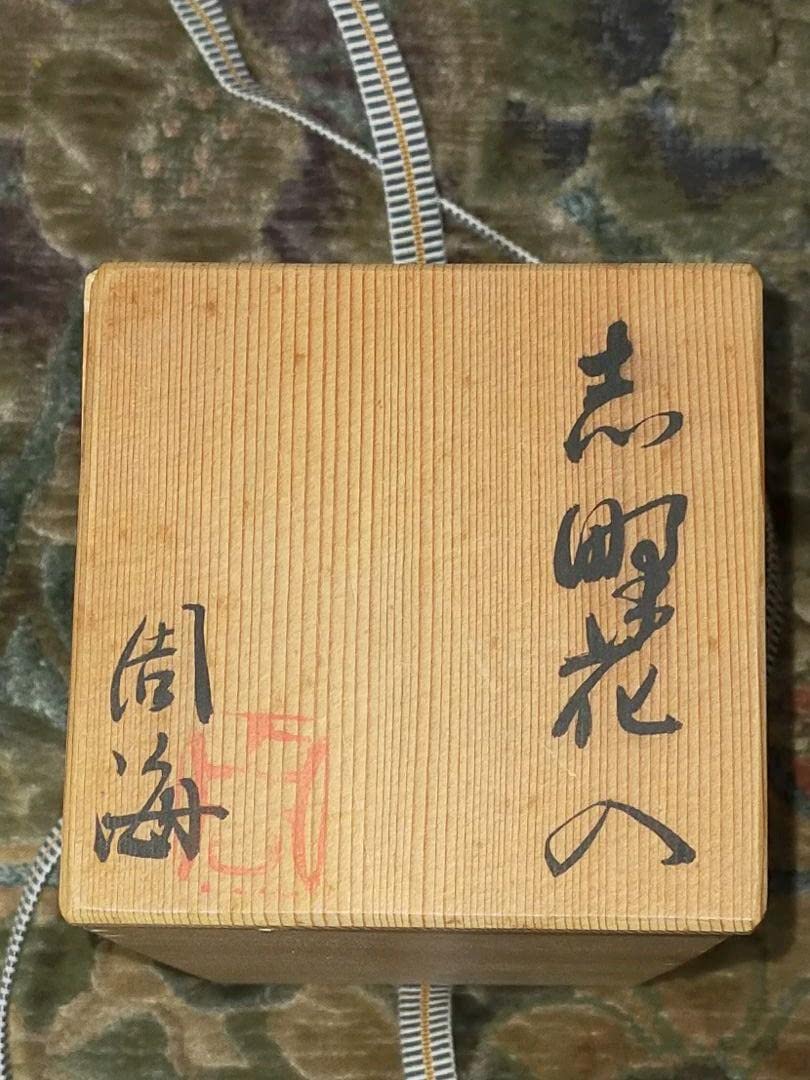 志野花入
周海